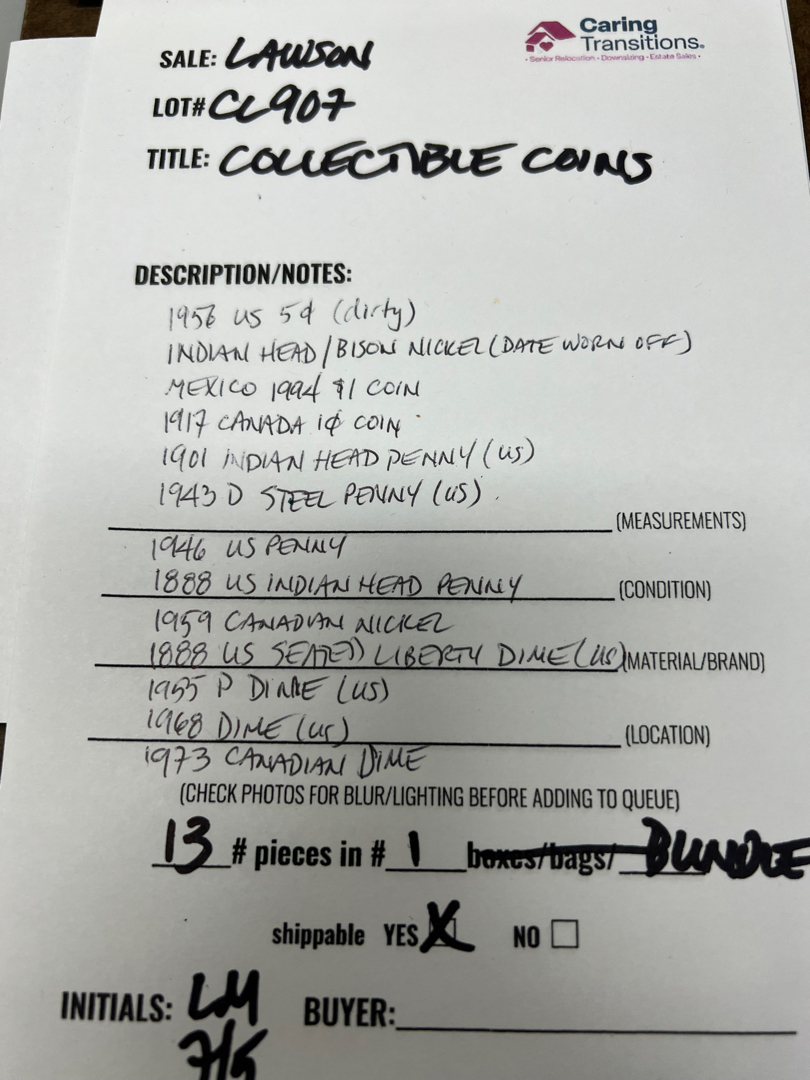 Caring
Transitions®
• Senior Relocation • Downsizing • Estate Sales •
SALE: LAWSON
LOT# CL907
TITLE: COLLECTIBLE COINS
DESCRIPTION/NOTES:
1956 US 5¢ (dirty)
INDIAN HEAD/BISON NICKEL (DATE WORN OFF)
MEXICO 1994 $1 COIN
1917 CANADA 1¢ COIN
1901 INDIAN HEAD PENNY (US)
1943 D STEEL PENNY (US).
(MEASUREMENTS)
1946 US PENNY
1888 US INDIAN HEAD PENNY (CONDITION)
1959 CANADIAN NICKEL
1888 US SEATED LIBERTY DIME (US) (MATERIAL/BRAND)
1955 P DIME (US)
1968 DIME (US) (LOCATION)
1973 CANADIAN DIME
(CHECK PHOTOS FOR BLUR/LIGHTING BEFORE ADDING TO QUEUE)
13 # pieces in # 1 boxes/bags/ BUNDLE
shippable YES X NO
INITIALS: LM BUYER:
7/5